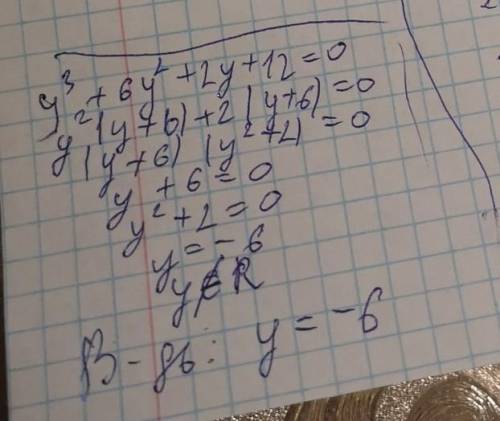 y³ + 6y² + 2y + 12 = 0
y²(y + 6) + 2(y + 6) = 0
(y + 6) (y² + 2) = 0
y + 6 = 0
y² + 2 = 0
y = - 6
y ∉ R
В - дь: y = -6